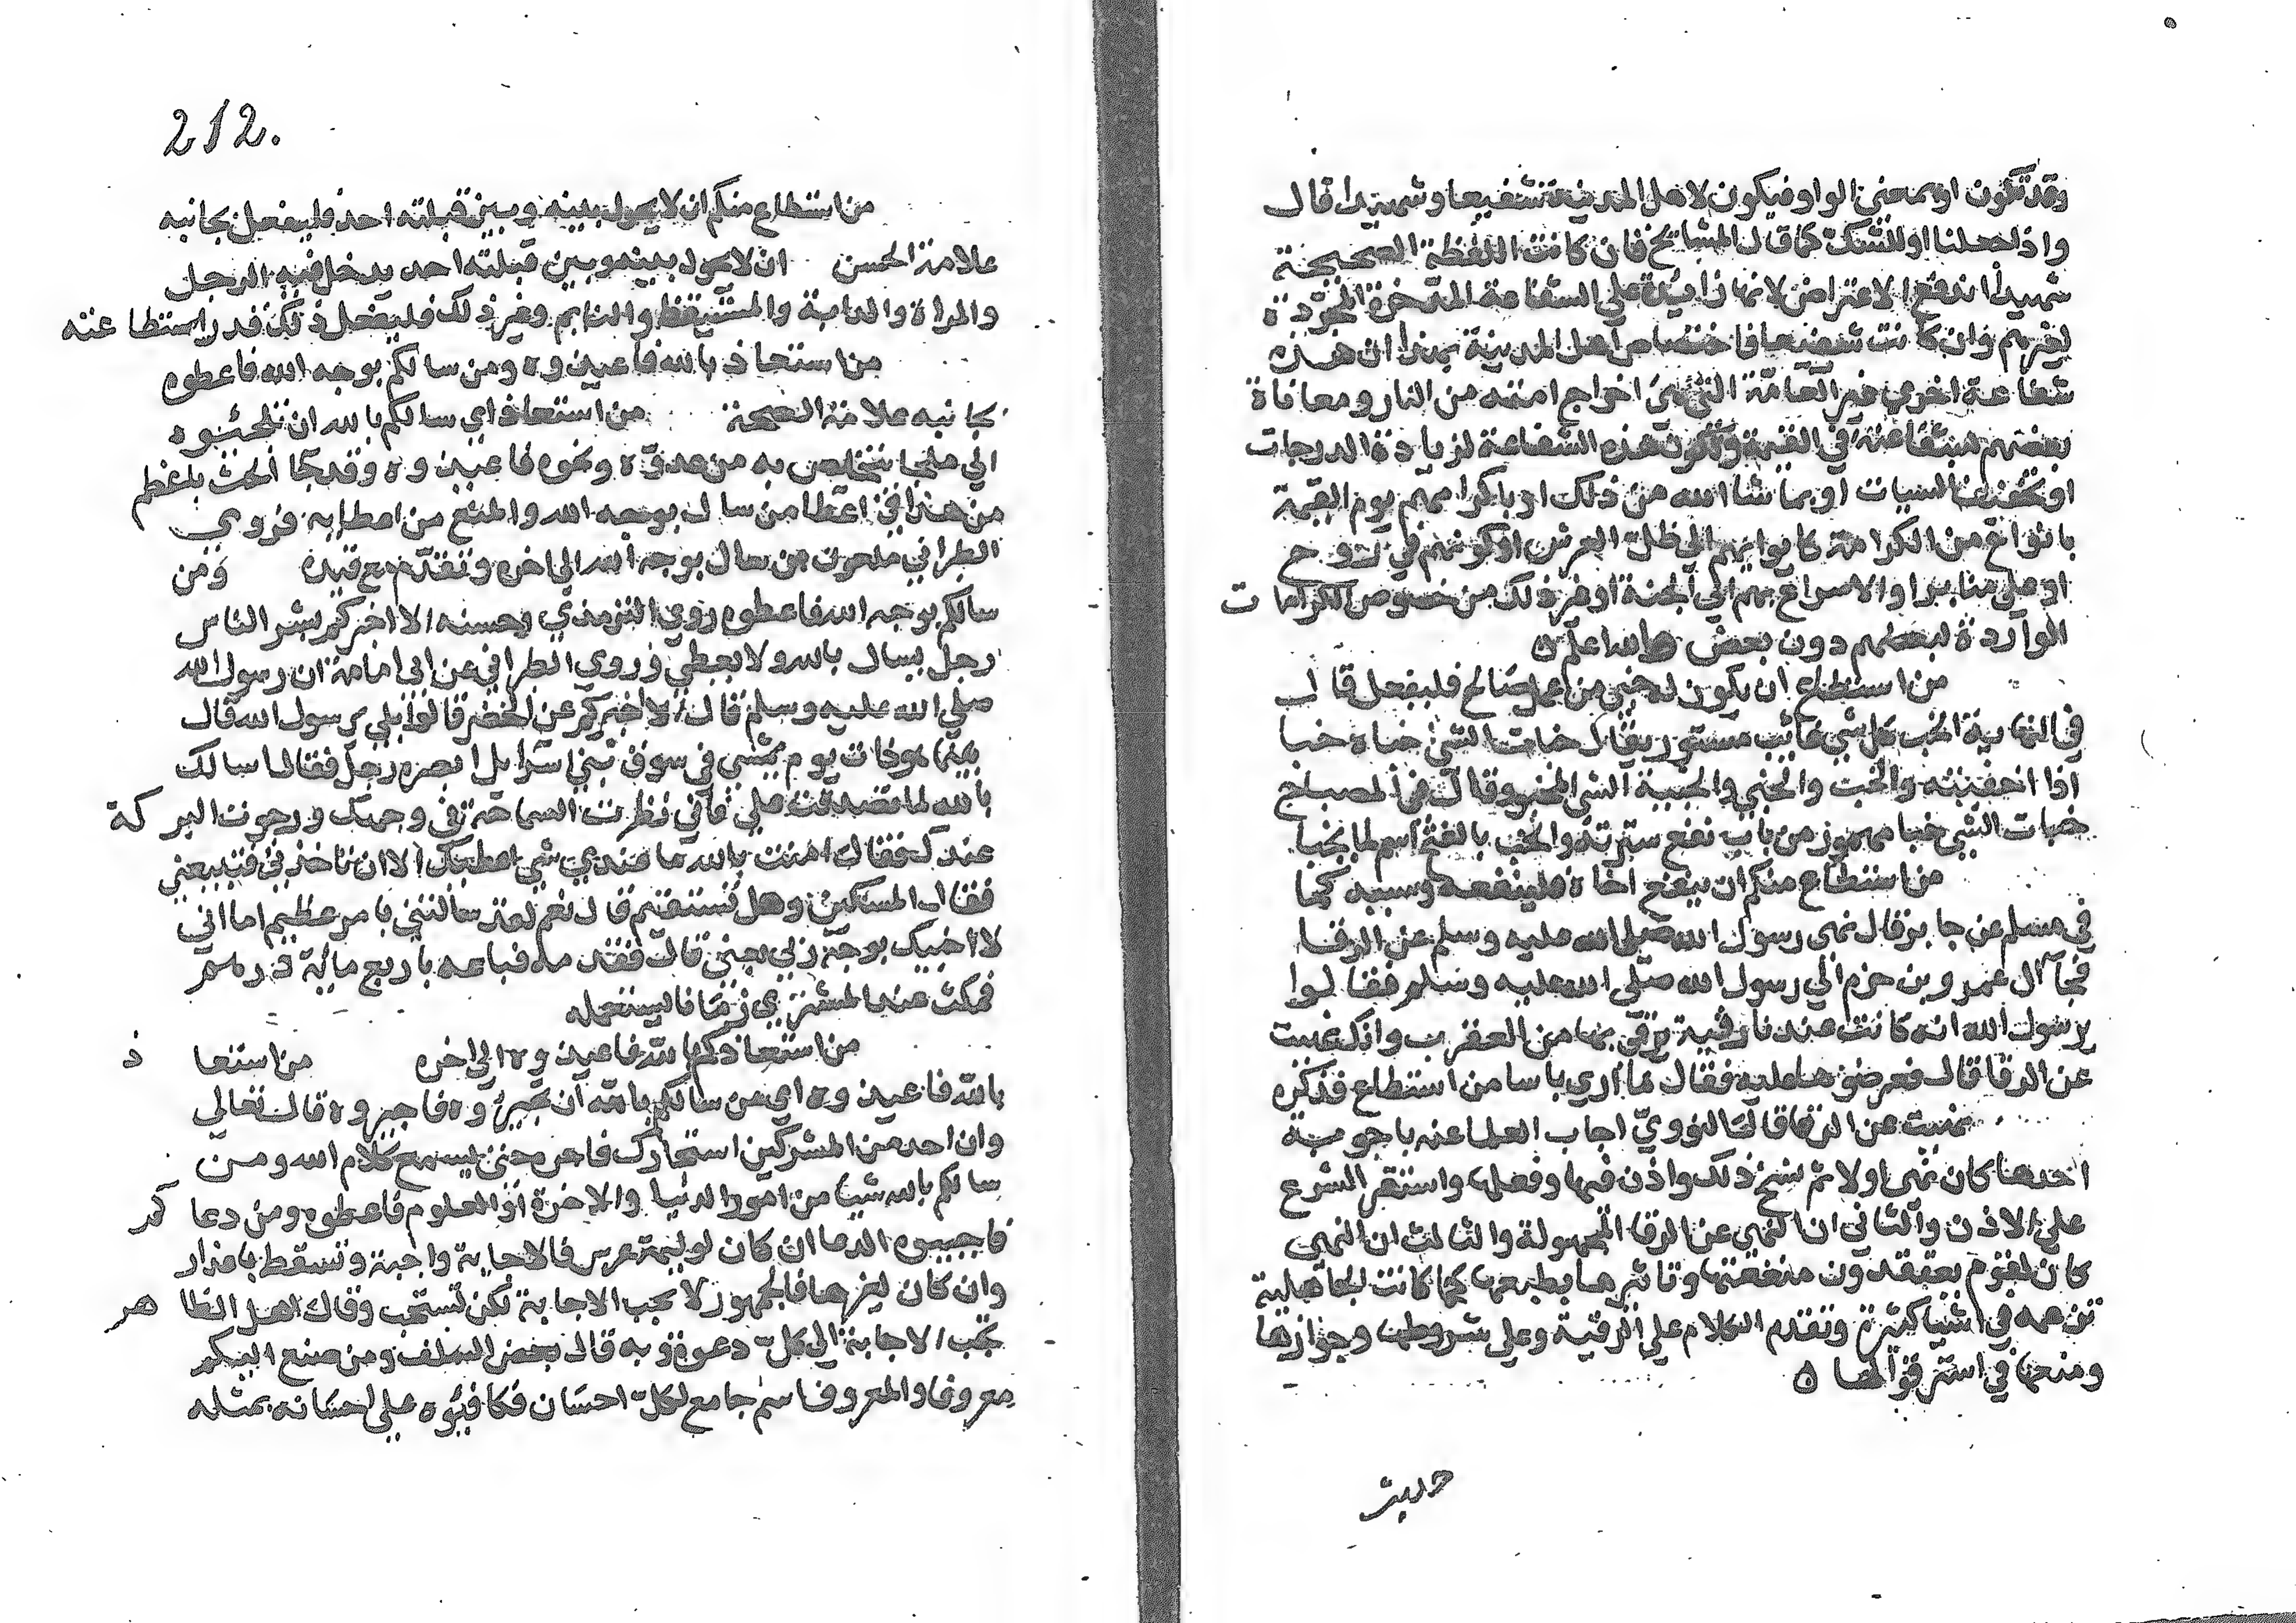 وقد تكون او بمعنى الواو فيكون لاهل المدينة شفيعا وشهيدا قال
واذا جعلنا او للشك كما قال المشايخ فان كانت اللفظة الصحيحة
شهيدا اندفع الاعتراض لانها زائدة على الشفاعة المدخرة المجردة
لغيرهم وان كانت شفيعا فاختصاص اهل المدينة بهذا ان هذه
شفاعة اخري غير العامة التي هي اخراج امته من النار ومعافاة
بعضهم بشفاعته في القيمة وتكون هذه الشفاعة لزيادة الدرجات
او تخفيف السيات او بما شا الله من ذلك او باكرامهم يوم القيمة
بانواع من الكرامة كايوايهم الي ظل العرش او كونهم في روح
او على منابر او الاسراع بهم الي الجنة او غير ذلك من خصوص الكرامات
الواردة لبعضهم دون بعض والله اعلم ٥
من استطاع ان يكون له خبي من عمل صالح فليفعل قال
في النهاية الخب كل شي غائب مستور يقال خبات الشي خباه خبا
اذا اخفيته والخب والخبي والخبية الشي المخبو وقال في المصباح
خبات الشي خبا مهموز من باب نفع سترته والخب بالفتح اسم لما يخبا
من استطاع منكم ان ينفع اخاه فلينفعه وسببه كما
في مسلم عن جابر قال نهى رسول الله صلى الله عليه وسلم عن الرقا
فجا آل عمرو بن حزم الي رسول الله صلى الله عليه وسلم فقالوا
يرسول الله انه كانت عندنا رقية نرقي بها من العقرب وانك نهيت
عن الرقا قال فعرضوها عليه فقال ما اري باسا من استطاع فذكره
نهيت عن الرقا قال النووي اجاب العلما عنه باجوبة
احدها كان نهى اولا ثم نسخ ذلك واذن فيها وفعلها واستقر الشرع
علي الاذن والثاني ان النهي عن الرقا المجهولة والثالث ان النهي
كان لقوم يعتقدون منفعتها وتاثيرها بطبعها كما كانت الجاهلية
تزعمه في اشيا كثيرة وتقدم الكلام علي الرقية وعلي شروطها وجوازها
ومنعها في استرقوا لها ٥
حديث
212.
من استطاع منكم ان لا يحول بينه وبين قبلته احد فليفعل بجانبه
علامة الحسن ان لا يحول بينه وبين قبلته احد يدخل فيه الرجل
والمراة والدابة والمستيقظ والنايم وغير ذلك فليفعل ذلك قدر استطاعته
من استعاذ بالله فاعيذوه ومن سالكم بوجه الله فاعطوه
بجانبه علامة الصحة من استعاذ اي سالكم بالله ان تلجئوه
الي ملجا يتخلص به من عدوه ونحوه فاعيذوه وقد جا الحث باعظم
من هذا في اعطا من سال بوجه الله والمنع من اعطايه فروي
الطبراني ملعون من سال بوجه الله الي اخره وتقدم مع قيده ومن
سالكم بوجه الله فاعطوه روي الترمذي وحسنه الا اخبركم بشر الناس
رجل يسال بالله ولا يعطي وروي الطبراني عن ابي امامة ان رسول الله
صلى الله عليه وسلم قال الا اخبركم عن الخضر قالوا بلي يرسول الله قال
بينما هو ذات يوم يمشي في سوق بني اسرايل ابصره رجل فقال اسالك
بالله لما تصدقت علي فاني نظرت السماحة في وجهك ورجوت البركة
عندك فقال امنت بالله ما عندي شي اعطيك الا ان تاخذني فتبيعني
فقال المسكين وهل تستقيم قال نعم لقد سالتني بامر عظيم اما اني
لا اخيبك بوجه ربي بعني قال فقدمه فباعه باربع مائة درهم
فمكث عند المشتري زمانا لا يستعمله
من استعاذكم بالله فاعيذوه الي اخره من استعاذ
بالله فاعيذوه اي من سالكم بالله ان تجيروه فاجيروه قال تعالي
وان احد من المشركين استجارك فاجره حتى يسمع كلام الله ومن
سالكم بالله شيا من امور الدنيا والاخرة او العلوم فاعطوه ومن دعاكم
فاجيبوه الدعا ان كان لوليمة عرس فالاجابة واجبة وتسقط باعذار
وان كان لغيرها فالجمهور لا يجب الاجابة لكن تستحب وقال اهل الظاهر
تجب الاجابة الي كل دعوة وبه قال بعض السلف ومن صنع اليكم
معروفا والمعروف اسم جامع لكل احسان فكافئوه علي احسانه بمثله